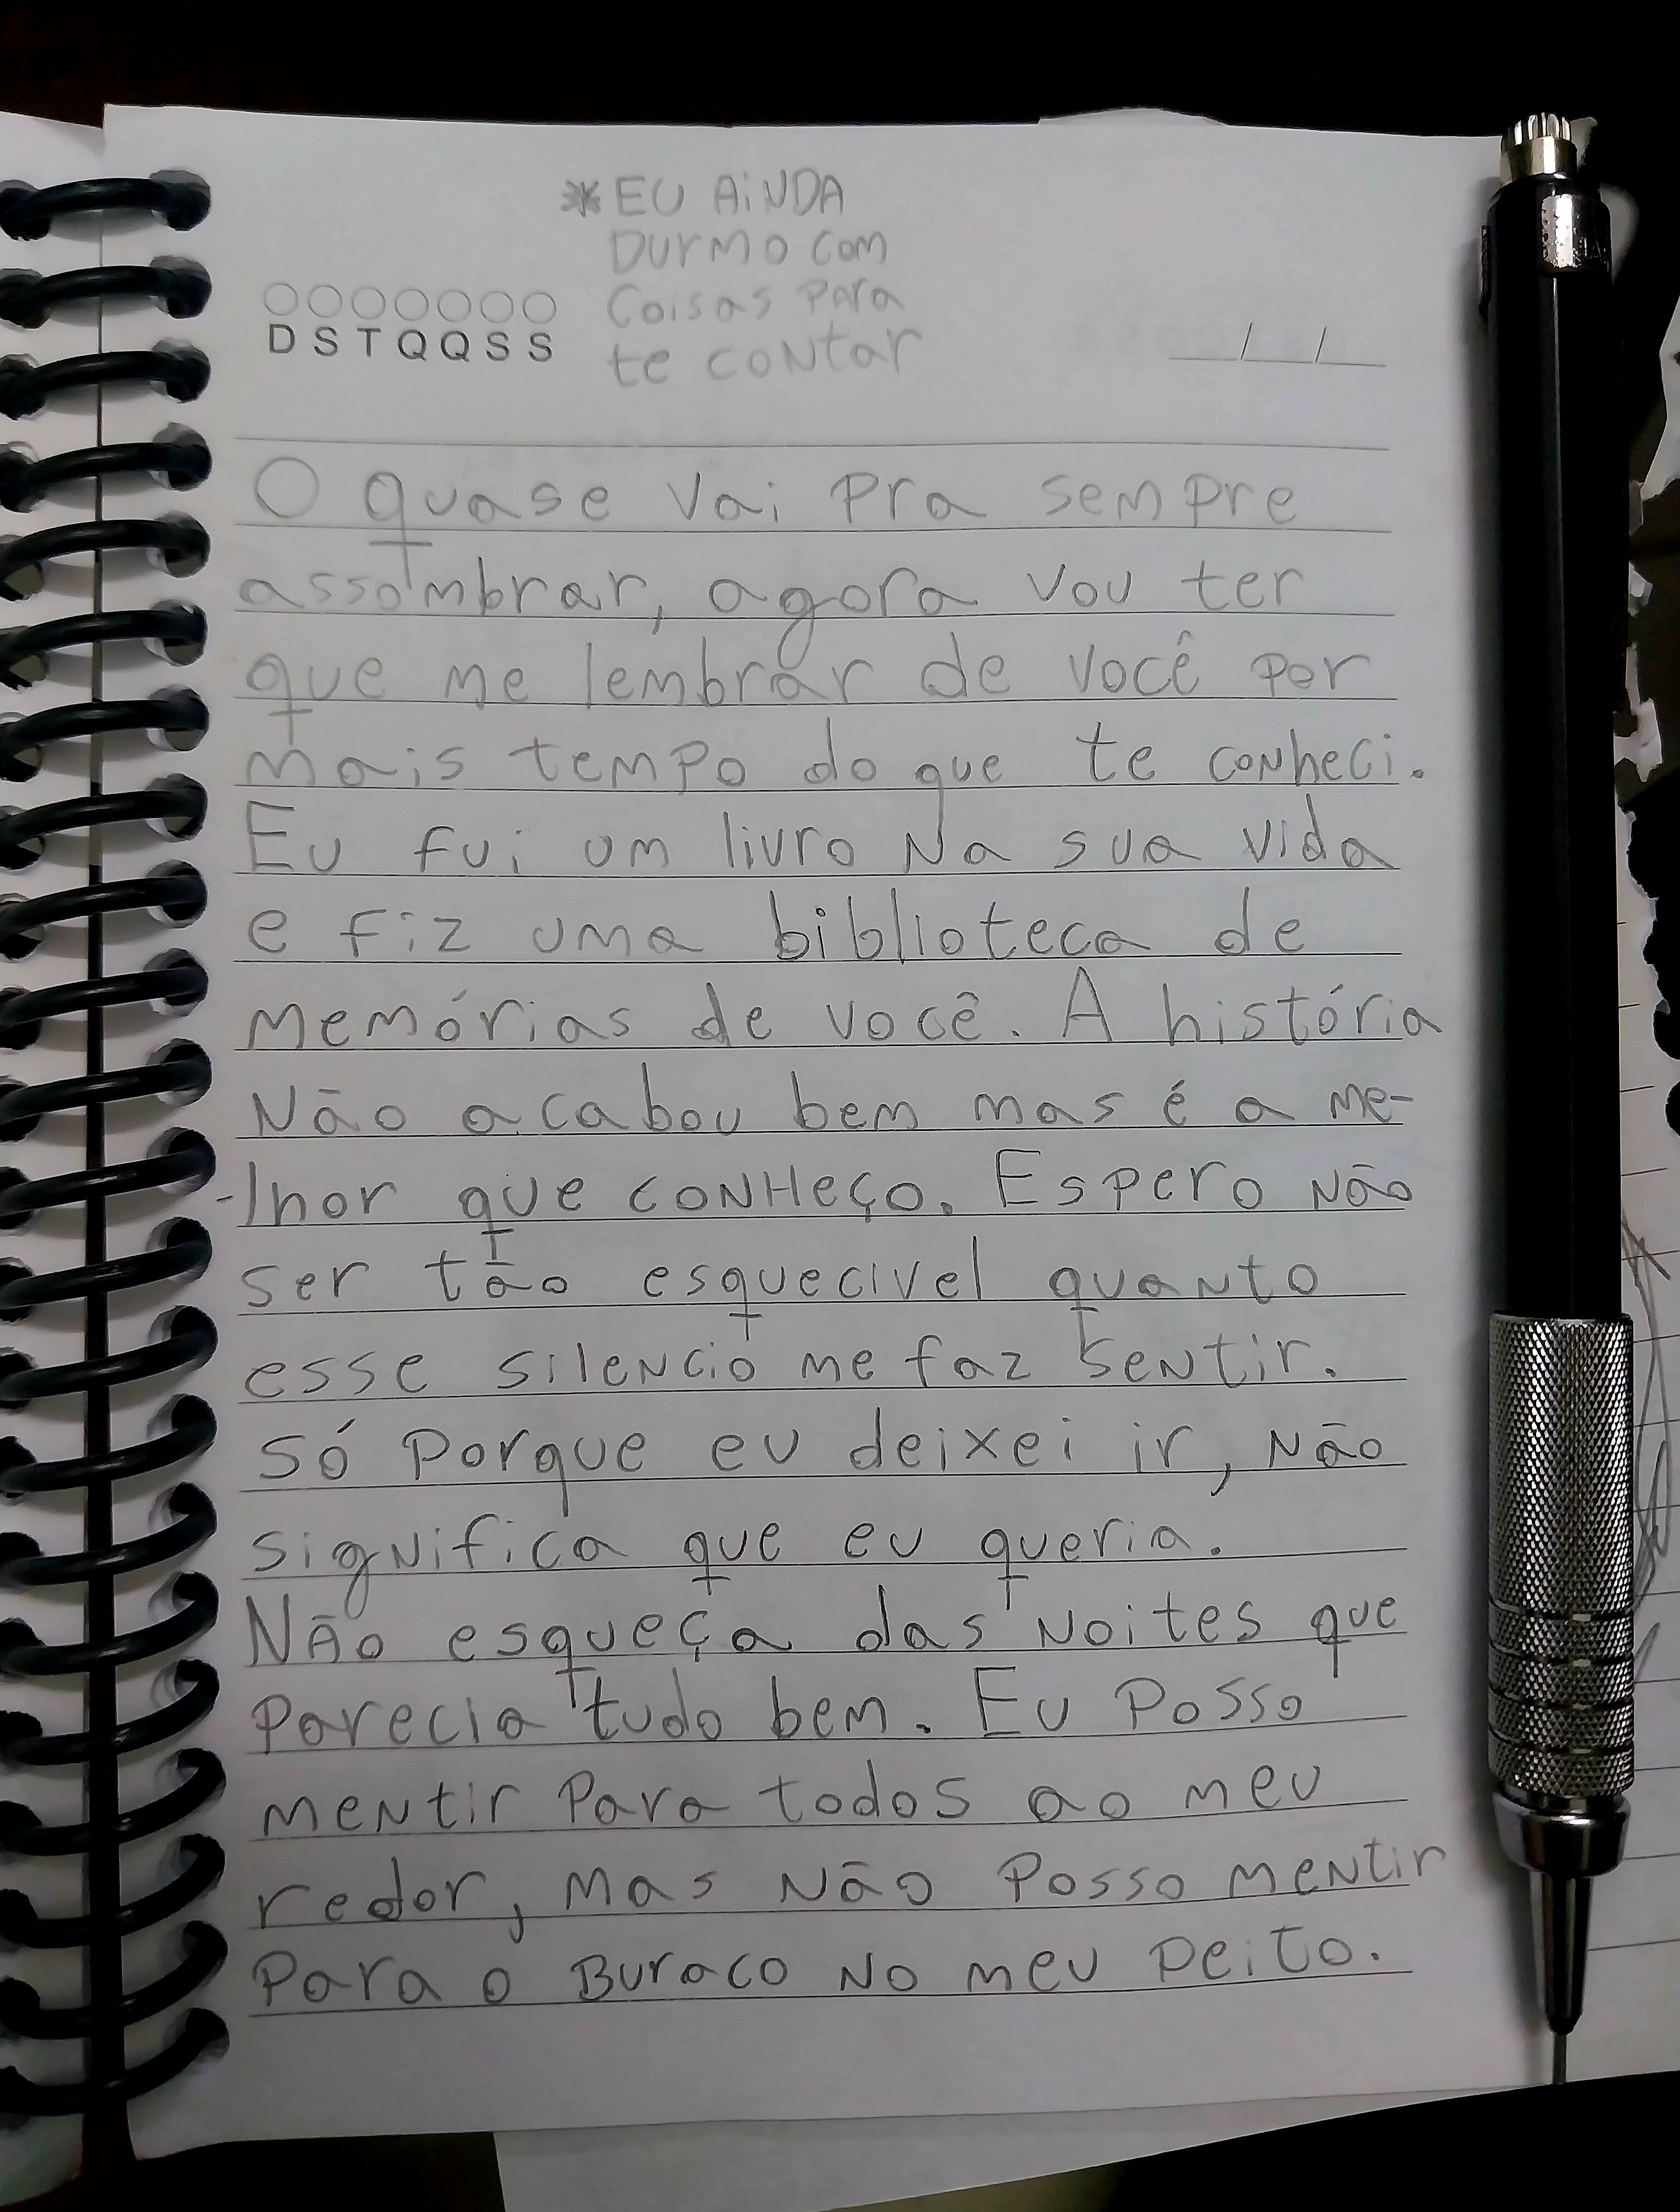 * EU AiNDA
DurmO com
Coisas para
te coNtar
DSTQQSS
/ /
O quase vai pra sempre
assombrar, agora vou ter
que me lembrar de você por
mais tempo do que te coNheci.
Eu fui um livro Na sua vida
e fiz uma biblioteca de
memórias de você. A história
Não acabou bem mas é a me-
-lhor que coNHeço. Espero Não
ser tão esquecivel quaNto
esse sileNcio me faz seNtir.
Só porque eu deixei ir, Não
sigNifica que eu queria.
Não esqueça das Noites que
parecia tudo bem. Eu posso
meNtir para todos ao meu
redor, mas Não posso meNtir
para o Buraco No meu peito.